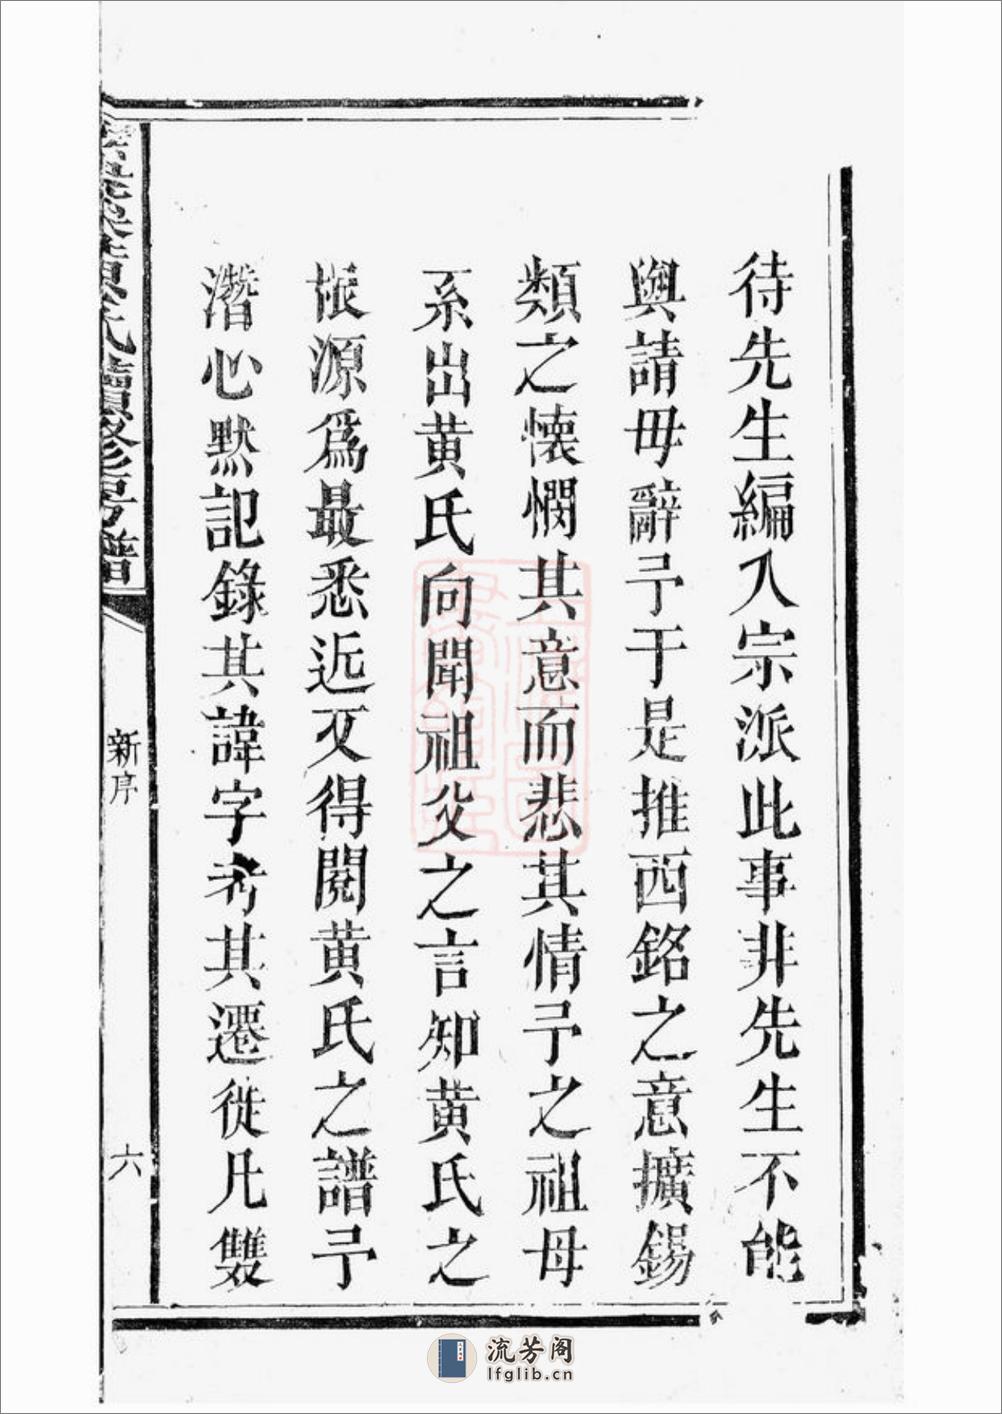 待先生編入宗派此事非先生不能
與請毋辭予于是推西銘之意擴錫
類之懷憫其意而悲其情予之祖母
系出黄氏向聞祖父之言知黄氏之
根源爲最悉近又得閱黄氏之譜予
潛心默記錄其諱字考其遷徙凡雙
黄氏續修房譜
新序
六
流芳阁
lfglib.cn